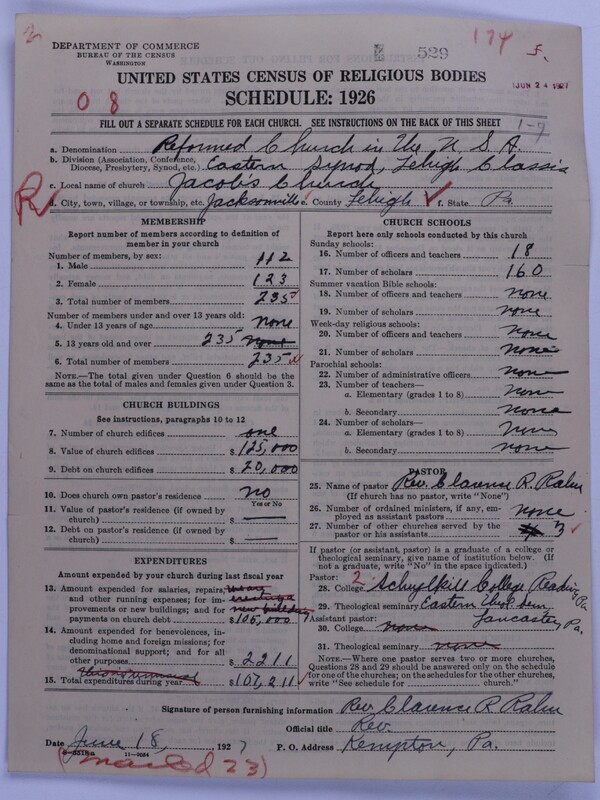 174
DEPARTMENT OF COMMERCE
BUREAU OF THE CENSUS
WASHINGTON
529
JUN 24 1927
UNITED STATES CENSUS OF RELIGIOUS BODIES
0 8
SCHEDULE: 1926
FILL OUT A SEPARATE SCHEDULE FOR EACH CHURCH. SEE INSTRUCTIONS ON THE BACK OF THIS SHEET
1-7
a. Denomination Reformed Church in the U. S. A.
b. Division (Association, Conference, Diocese, Presbytery, Synod, etc.) Eastern Synod, Lehigh Classis
c. Local name of church Jacob's Church
R
d. City, town, village, or township, etc. Jacksonville e. County Lehigh f. State Pa.
MEMBERSHIP
Report number of members according to definition of
member in your church
Number of members, by sex:
1. Male 112
2. Female 123
3. Total number of members 235
Number of members under and over 13 years old:
4. Under 13 years of age none
5. 13 years old and over 235 none
6. Total number of members 235
NOTE.—The total given under Question 6 should be the
same as the total of males and females given under Question 3.
CHURCH BUILDINGS
See instructions, paragraphs 10 to 12
7. Number of church edifices one
8. Value of church edifices $125,000
9. Debt on church edifices $20,000
10. Does church own pastor's residence no
Yes or No
11. Value of pastor's residence (if owned by
church) $ —
12. Debt on pastor's residence (if owned by
church) $ —
EXPENDITURES
Amount expended by your church during last fiscal year
13. Amount expended for salaries, repairs,
and other running expenses; for im-
provements or new buildings; and for new building
payments on church debt $105,000
14. Amount expended for benevolences, in-
cluding home and foreign missions; for
denominational support; and for all
other purposes $2211
15. Total expenditures during year $107,211
CHURCH SCHOOLS
Report here only schools conducted by this church
Sunday schools:
16. Number of officers and teachers 18
17. Number of scholars 160
Summer vacation Bible schools:
18. Number of officers and teachers none
19. Number of scholars none
Week-day religious schools:
20. Number of officers and teachers none
21. Number of scholars none
Parochial schools:
22. Number of administrative officers none
23. Number of teachers—
a. Elementary (grades 1 to 8) none
b. Secondary none
24. Number of scholars—
a. Elementary (grades 1 to 8) none
b. Secondary none
PASTOR
25. Name of pastor Rev. Clarence R. Rahn
(If church has no pastor, write "None")
26. Number of ordained ministers, if any, em-
ployed as assistant pastors none
27. Number of other churches served by the
pastor or his assistants 3
If pastor (or assistant, pastor) is a graduate of a college or
theological seminary, give name of institution below. (If
not a graduate, write "No" in the space indicated.)
Pastor: 2
28. College Schuylkill College Reading Pa
29. Theological seminary Eastern Theol. Sem
Assistant pastor: Lancaster Pa.
30. College none
31. Theological seminary none
NOTE.—Where one pastor serves two or more churches,
Questions 28 and 29 should be answered only on the schedule
for one of the churches; on the schedules for the other churches,
write "See schedule for ........ church."
Signature of person furnishing information Rev Clarence R Rahn
Official title Rev.
Date June 18, 1927 P. O. Address Kempton, Pa.
8-5518a 11-9084
(mailed 23)